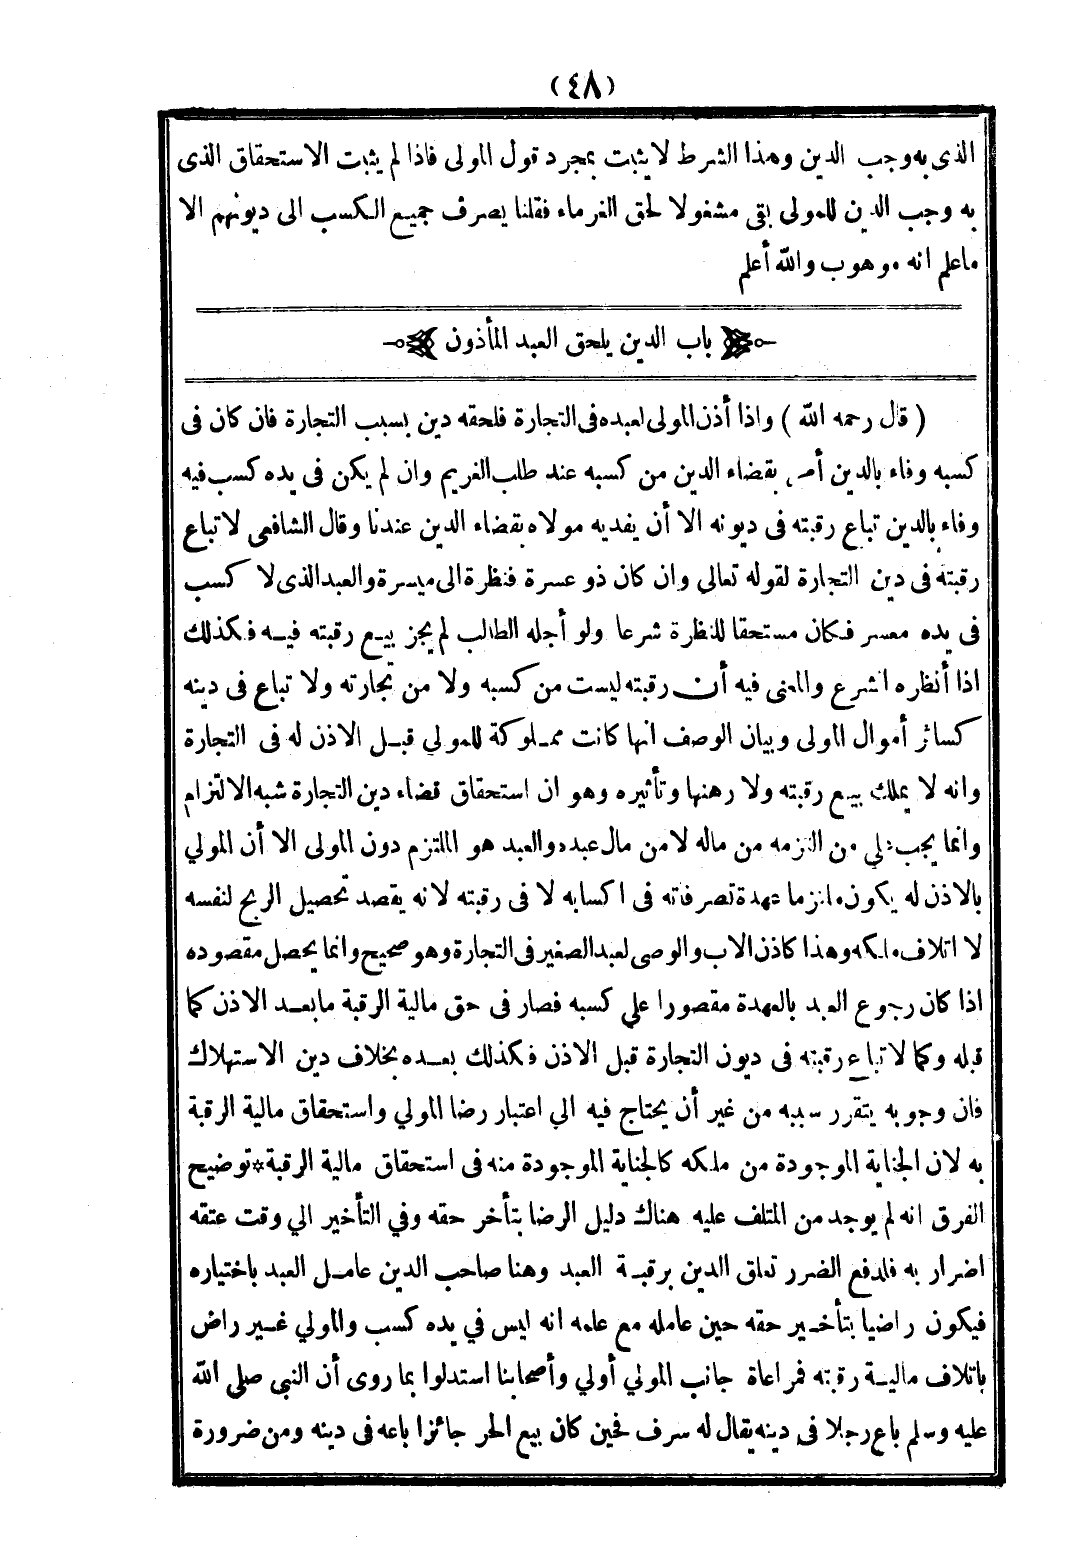 (٤٨)
الذى به وجب الدين وهذا الشرط لا يثبت بمجرد قول المولى فاذا لم يثبت الاستحقاق الذى
به وجب الدين للمولى بقى مشغولا لحق الغرماء فقلنا يصرف جميع الكسب الى ديونهم الا
ما علم انه موهوب والله أعلم
باب الدين يلحق العبد المأذون
( قال رحمه الله ) واذا أذن المولى لعبده فى التجارة فلحقه دين بسبب التجارة فان كان فى
كسبه وفاء بالدين أمر بقضاء الدين من كسبه عند طلب الغريم وان لم يكن فى يده كسب فيه
وفاء بالدين تباع رقبته فى ديونه الا أن يفديه مولاه بقضاء الدين عندنا وقال الشافعى لا تباع
رقبته فى دين التجارة لقوله تعالى وان كان ذو عسرة فنظرة الى ميسرة والعبد الذى لا كسب
فى يده معسر فكان مستحقا للنظرة شرعا ولو أجله الطالب لم يجز بيع رقبته فيه فكذلك
اذا أنظره الشرع والمعنى فيه أن رقبته ليست من كسبه ولا من تجارته ولا تباع فى دينه
كسائر أموال المولى وبيان الوصف انها كانت مملوكة للمولي قبل الاذن له فى التجارة
وانه لا يملك بيع رقبته ولا رهنها وتأثيره وهو ان استحقاق قضاء دين التجارة شبه الالتزام
وانما يجب علي من التزمه من ماله لا من مال عبده والعبد هو الملتزم دون المولى الا أن المولي
بالاذن له يكون ملتزما عهدة تصرفاته فى اكسابه لا فى رقبته لانه يقصد تحصيل الربح لنفسه
لا اتلاف ملكه وهذا كاذن الاب والوصى لعبد الصغير فى التجارة وهو صحيح وانما يحصل مقصوده
اذا كان رجوع العبد بالعهدة مقصورا علي كسبه فصار فى حق مالية الرقبة ما بعد الاذن كما
قبله وكما لا تباع رقبته فى ديون التجارة قبل الاذن فكذلك بعده بخلاف دين الاستهلاك
فان وجوبه يتقرر سببه من غير أن يحتاج فيه الي اعتبار رضا المولي واستحقاق مالية الرقبة
به لان الجناية الموجودة من ملكه كالجناية الموجودة منه فى استحقاق مالية الرقبة * توضيح
الفرق انه لم يوجد من المتلف عليه هناك دليل الرضا بتأخر حقه وفي التأخير الي وقت عتقه
اضرار به فلدفع الضرر تعلق الدين برقبة العبد وهنا صاحب الدين عامل العبد باختياره
فيكون راضيا بتأخير حقه حين عامله مع علمه انه ليس في يده كسب والمولي غير راض
باتلاف مالية رقبته فمراعاة جانب المولي أولي وأصحابنا استدلوا بما روى أن النبي صلي الله
عليه وسلم باع رجلا في دينه يقال له سرف فحين كان بيع الحر جائزا باعه فى دينه ومن ضرورة